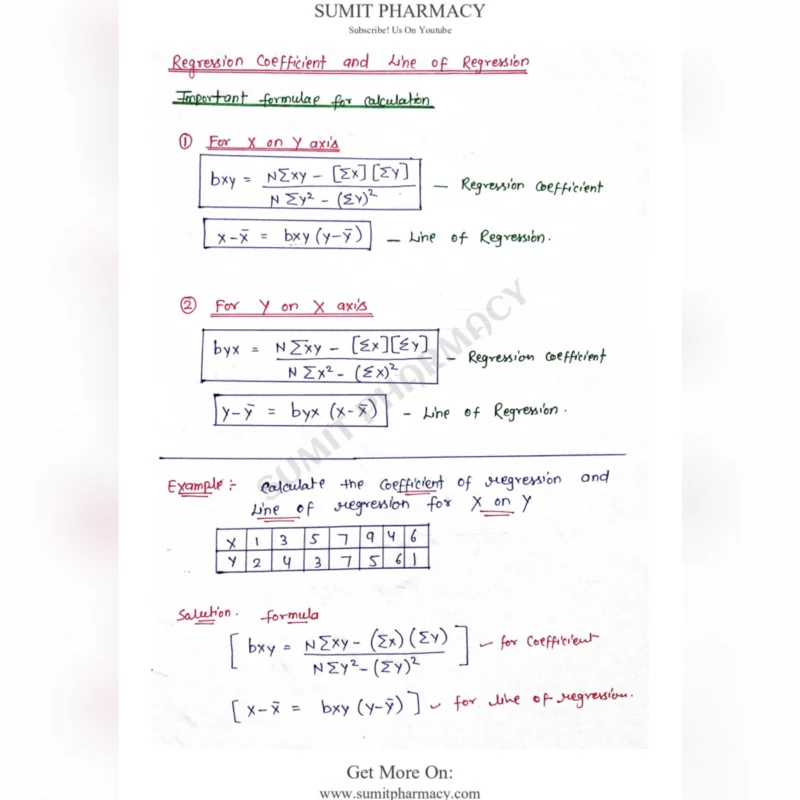 SUMIT PHARMACY
Subscribe! Us On Youtube
Regression Coefficient and Line of Regression
Important formulae for calculation
① For X on Y axis
bxy = NΣxy - [Σx] [Σy] / N Σy² - (Σy)² — Regression Coefficient
x-x̄ = bxy (y-ȳ) — Line of Regression.
② For Y on X axis
byx = NΣxy - [Σx][Σy] / N Σx² - (Σx)² - Regression Coefficient
y-ȳ = byx (x-x̄) - Line of Regression.
SUMIT PHARMACY
Example :- Calculate the coefficient of regression and
Line of regression for X on Y
X 1 3 5 7 9 4 6
Y 2 4 3 7 5 6 1
Solution. formula
[ bxy = NΣxy - (Σx) (Σy) / NΣy² - (Σy)² ] - for coefficient
[ x-x̄ = bxy (y-ȳ) ] - for line of regression.
Get More On:
www.sumitpharmacy.com